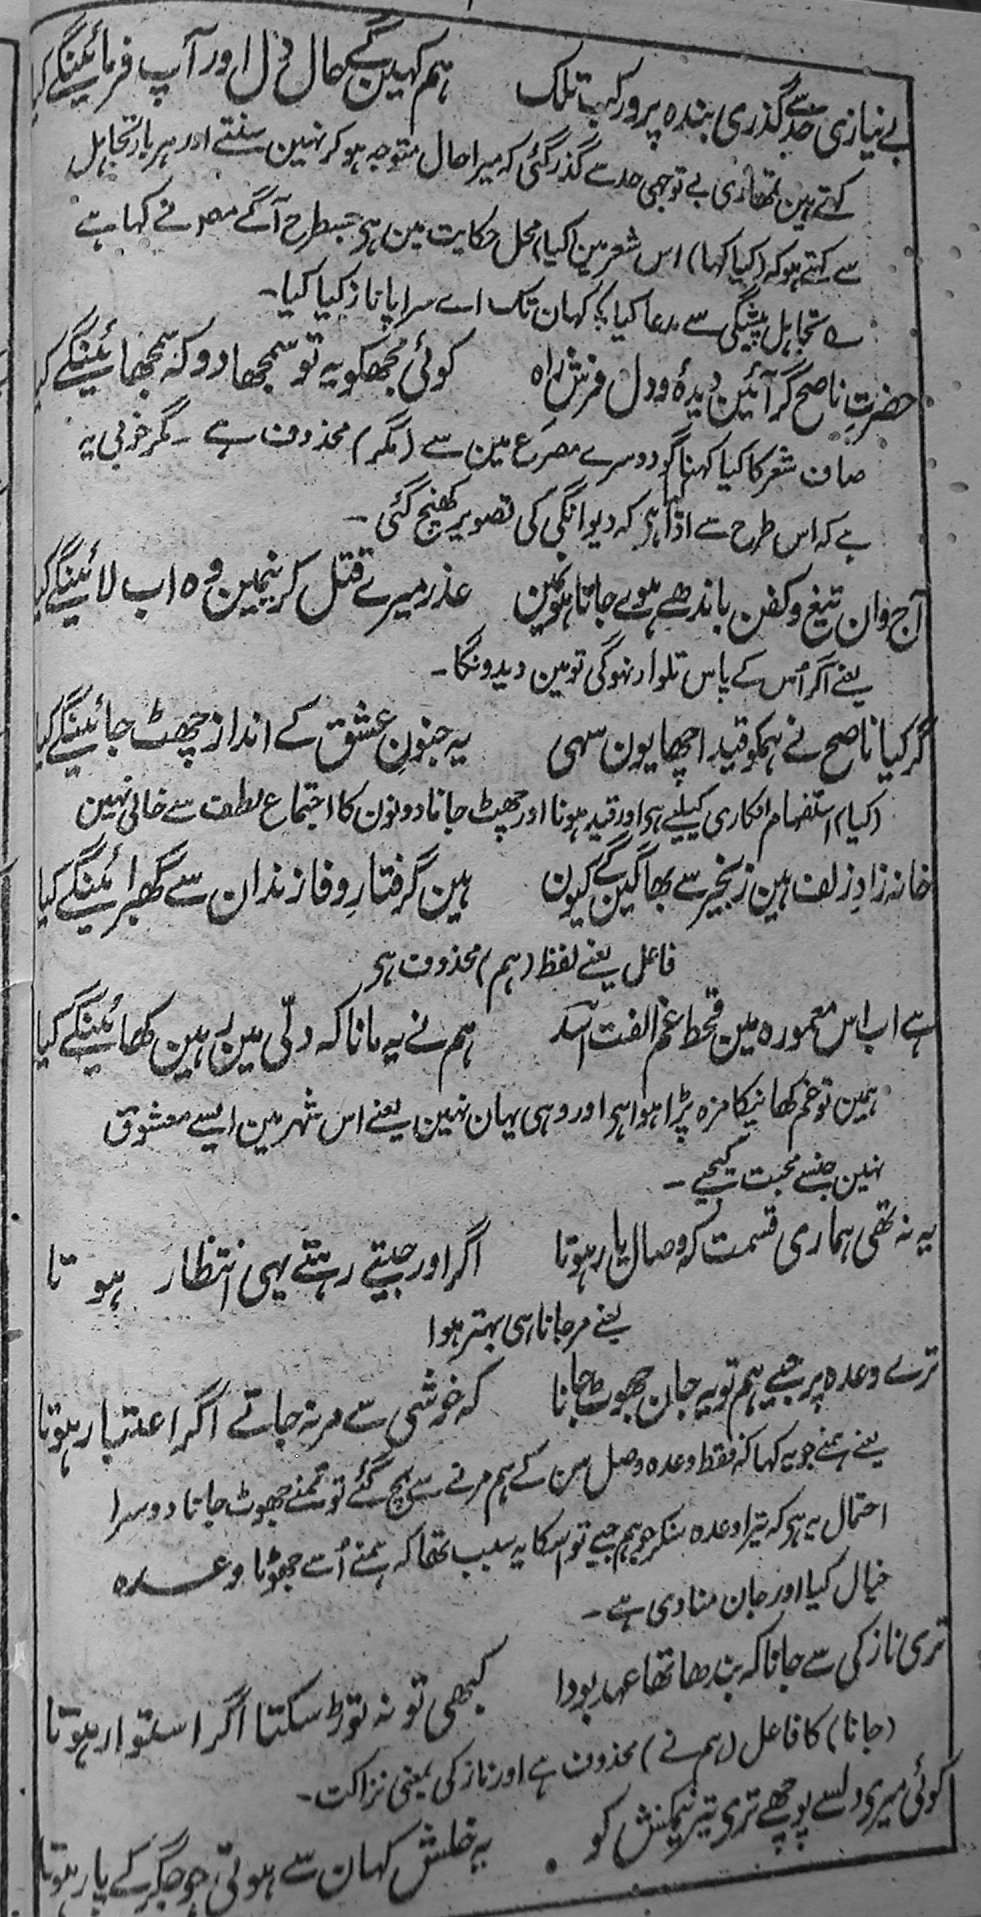 بے نیازی حد سے گذری بندہ پرور کب تلک ہم کہین گے حال دل اور آپ فرمائینگے کیا
کہتے ہین تمھاری بے توجہی حد سے گذر گئی کہ میرا حال متوجہ ہو کر نہین سنتے اور ہر بار تجاہل
سے کہتے ہو کہ (کیا کہا) اس شعر مین (کیا) محل حکایت مین ہی جسطرح آگے مصر نے کہا ہے
ے تجاہل پیشگی سے مدعا کیا ؛ کہان تک اے سراپا ناز کیا کیا۔
حضرتِ ناصح گر آئین دیدۂ و دل فرشِ راہ کوئی مجھکو یہ تو سمجھا دو کہ سمجھائینگے کیا
صاف شعر کا کیا کہنا گو دوسرے مصرع مین سے (مگر) محذوف ہے ۔ مگر خوبی یہ
ہے کہ اس طرح سے ادا ہی کہ دیوانگی کی تصویر کھنچ گئی ۔
آج وان تیغ و کفن باندھے ہوے جاتا ہون مین عذر میرے قتل کرنیمین وہ اب لائینگے کیا
یعنے اگر اُس کے پاس تلوار نہو گی تو مین دیدونگا۔
گر کیا ناصح نے ہمکو قید اچھا یون سہی یہ جنونِ عشق کے انداز چھٹ جائینگے کیا
(کیا) استفہام انکاری کیلیے ہی اور قید ہونا اور چھٹ جانا دونون کا اجتماع لطف سے خالی نہین
خانہ زادِ زلف ہین زنجیر سے بھاگین گے کیون ہین گرفتارِ وفا زندان سے گھبرائینگے کیا
فاعل یعنے لفظ (ہم) محذوف ہی
ہے اب اس معمورہ مین قحطِ غم الفت اسد ہم نے یہ مانا کہ دلّی مین رہین کھائینگے کیا
ہمین تو غم کھانیکا مزہ پڑا ہوا ہی اور وہی یہان نہین یعنے اس شہر مین ایسے معشوق
نہین جنسے محبت کیجیے ۔
یہ نہ تھی ہماری قسمت کہ وصال یار ہوتا اگر اور جیتے رہتے یہی انتظار ہوتا
یعنے مر جانا ہی بہتر ہوا
ترے وعدہ پر جیے ہم تو یہ جان جھوٹ جانا کہ خوشی سے مر نہ جاتے اگر اعتبار ہوتا
یعنے ہمنے جو یہ کہا کہ فقط وعدہ وصل سن کے ہم مرنے سے بچ گئے تو تمنے جھوٹ جانا دوسرا
احتمال یہ ہی کہ تیرا وعدہ سنکر جو ہم جیے تو اسکا یہ سبب تھا کہ ہمنے اُسے جھوٹا وعدہ
خیال کیا اور جان منادی ہے ۔
تری نازکی سے جانا کہ بندھا تھا عہد بودا کبھی تو نہ توڑ سکتا اگر استوار ہوتا
(جانا) کا فاعل (ہم نے) محذوف ہے اور نازکی بمعنی نزاکت ۔
کوئی میری دلسے پوچھے تری تیر نیمکش کو یہ خلش کہان سے ہوتی جو جگر کے پار ہوتا